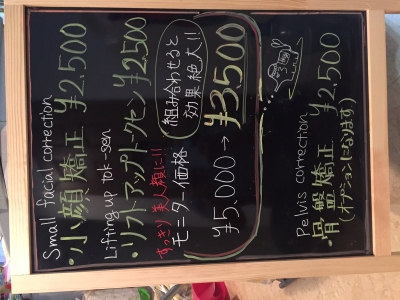 Small facial correction
・小顔矯正 ¥2,500
Lifting up tok-sen
・リフトアップトクセン ¥2,500
すっきり美人顔に!!
組み合わせると
効果絶大!!
モニター価格
¥5,000→¥3,500
Pelvis correction
・骨盤矯正 ¥2,500
(オプションになります)